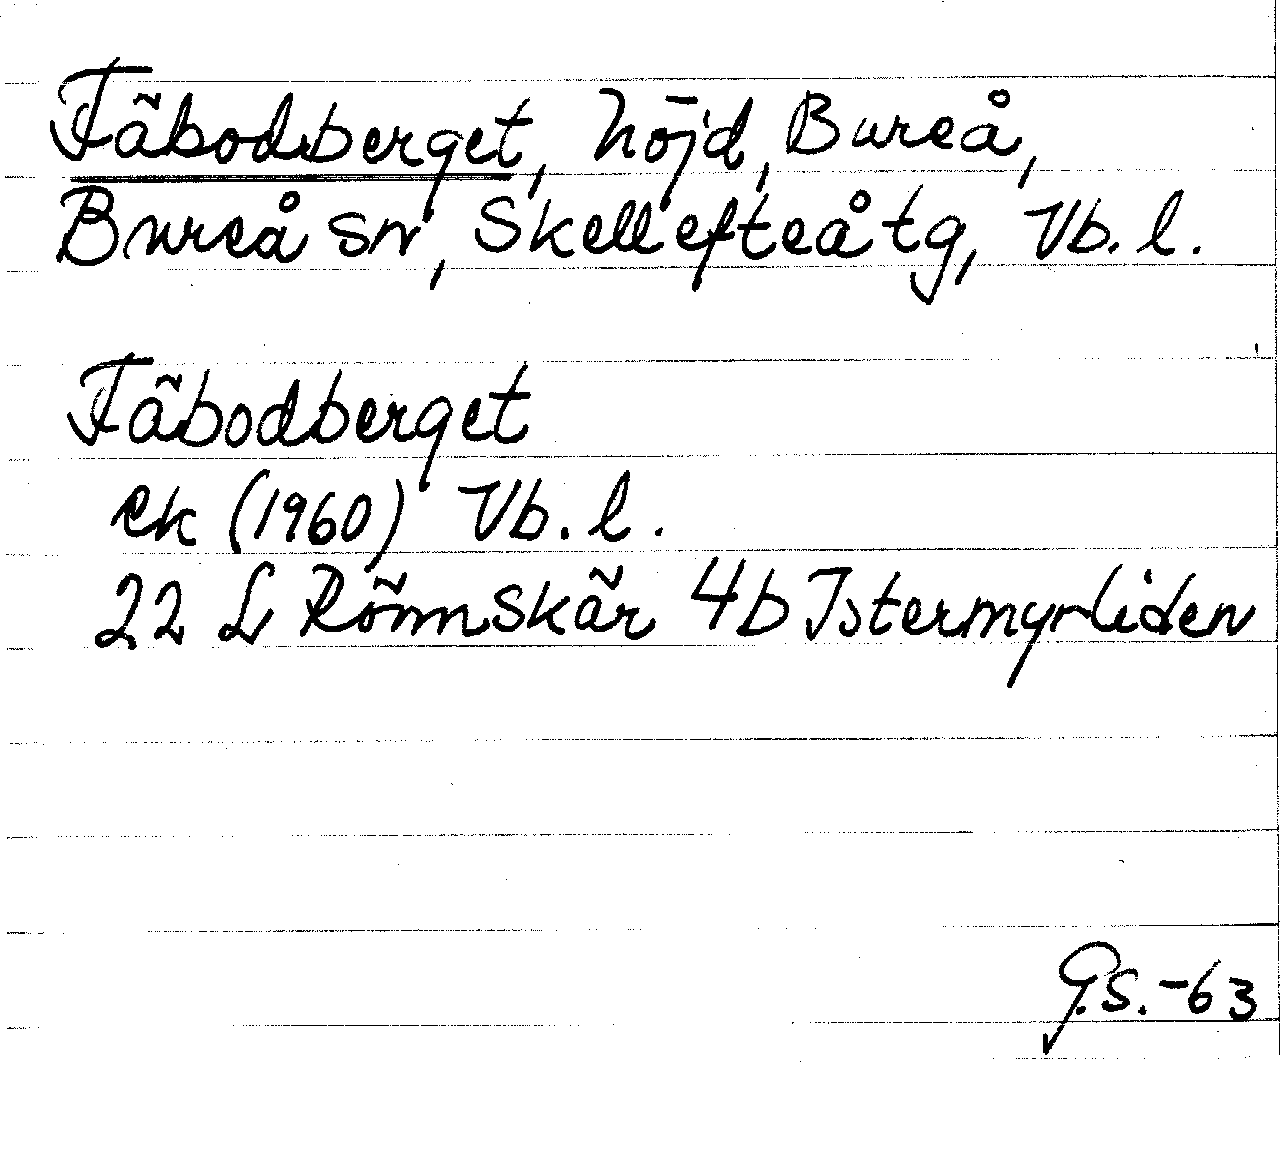 Fäbodberget, höjd, Bureå,
Bureå sn, Skellefteå tg, Vb. l.
Fäbodberget
ek (1960) Vb. l.
22 L Rönnskär 4b Istermyrliden
G.S. -63